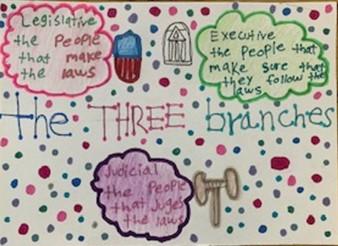 Legislative
the People
that make
the laws
Executive
the People that
make sure that
they follow the
laws
the THREE branches
Judicial
the People
that Juges
the laws